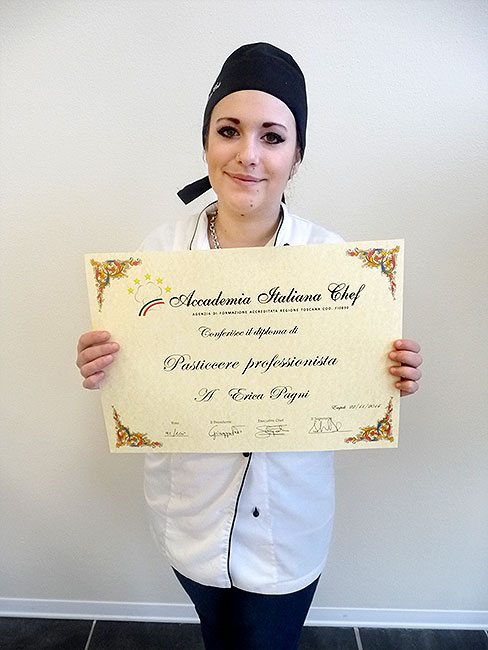 Accademia Italiana Chef
AGENZIA DI FORMAZIONE ACCREDITATA REGIONE TOSCANA COD. FI0890
Conferisce il diploma di
Pasticcere professionista
A Erica Pagni
Empoli 22/11/2014
Voto Il Presidente Executive Chef Il Segretario